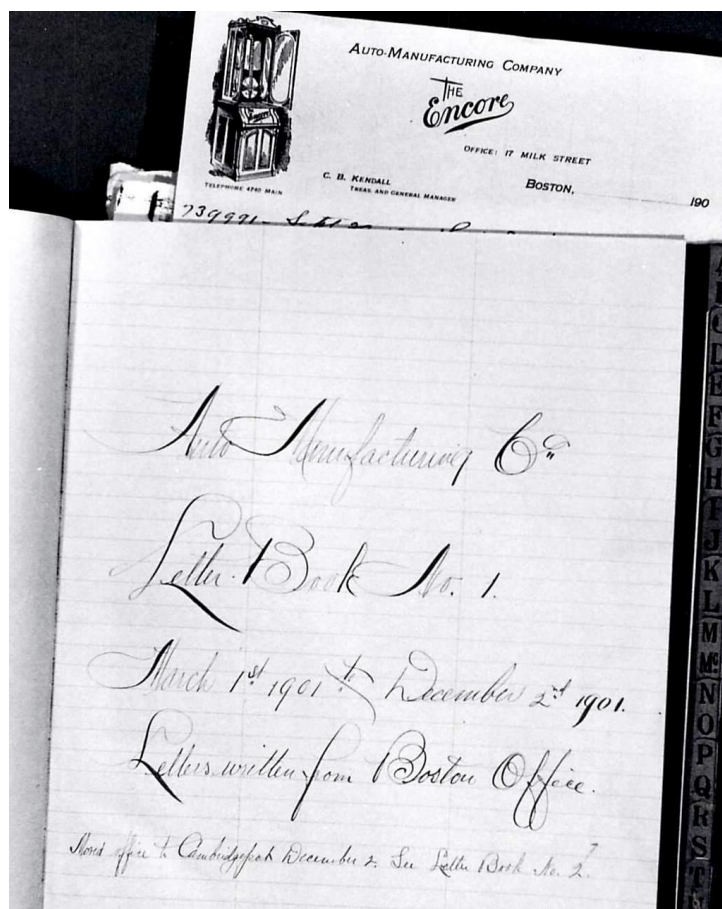 AUTO-MANUFACTURING COMPANY
THE
Encore
OFFICE: 17 MILK STREET
TELEPHONE 4740 MAIN
C. B. KENDALL
TREAS. AND GENERAL MANAGER
BOSTON, 190
739991
Auto Manufacturing Co
Letter Book No. 1.
March 1st 1901 to December 2nd 1901.
Letters written from Boston Office.
Moved office to Cambridgeport December 2. See Letter Book No. 2
D
E
F
G
H
I
J
K
L
M
Mc
N
O
P
Q
R
S
T